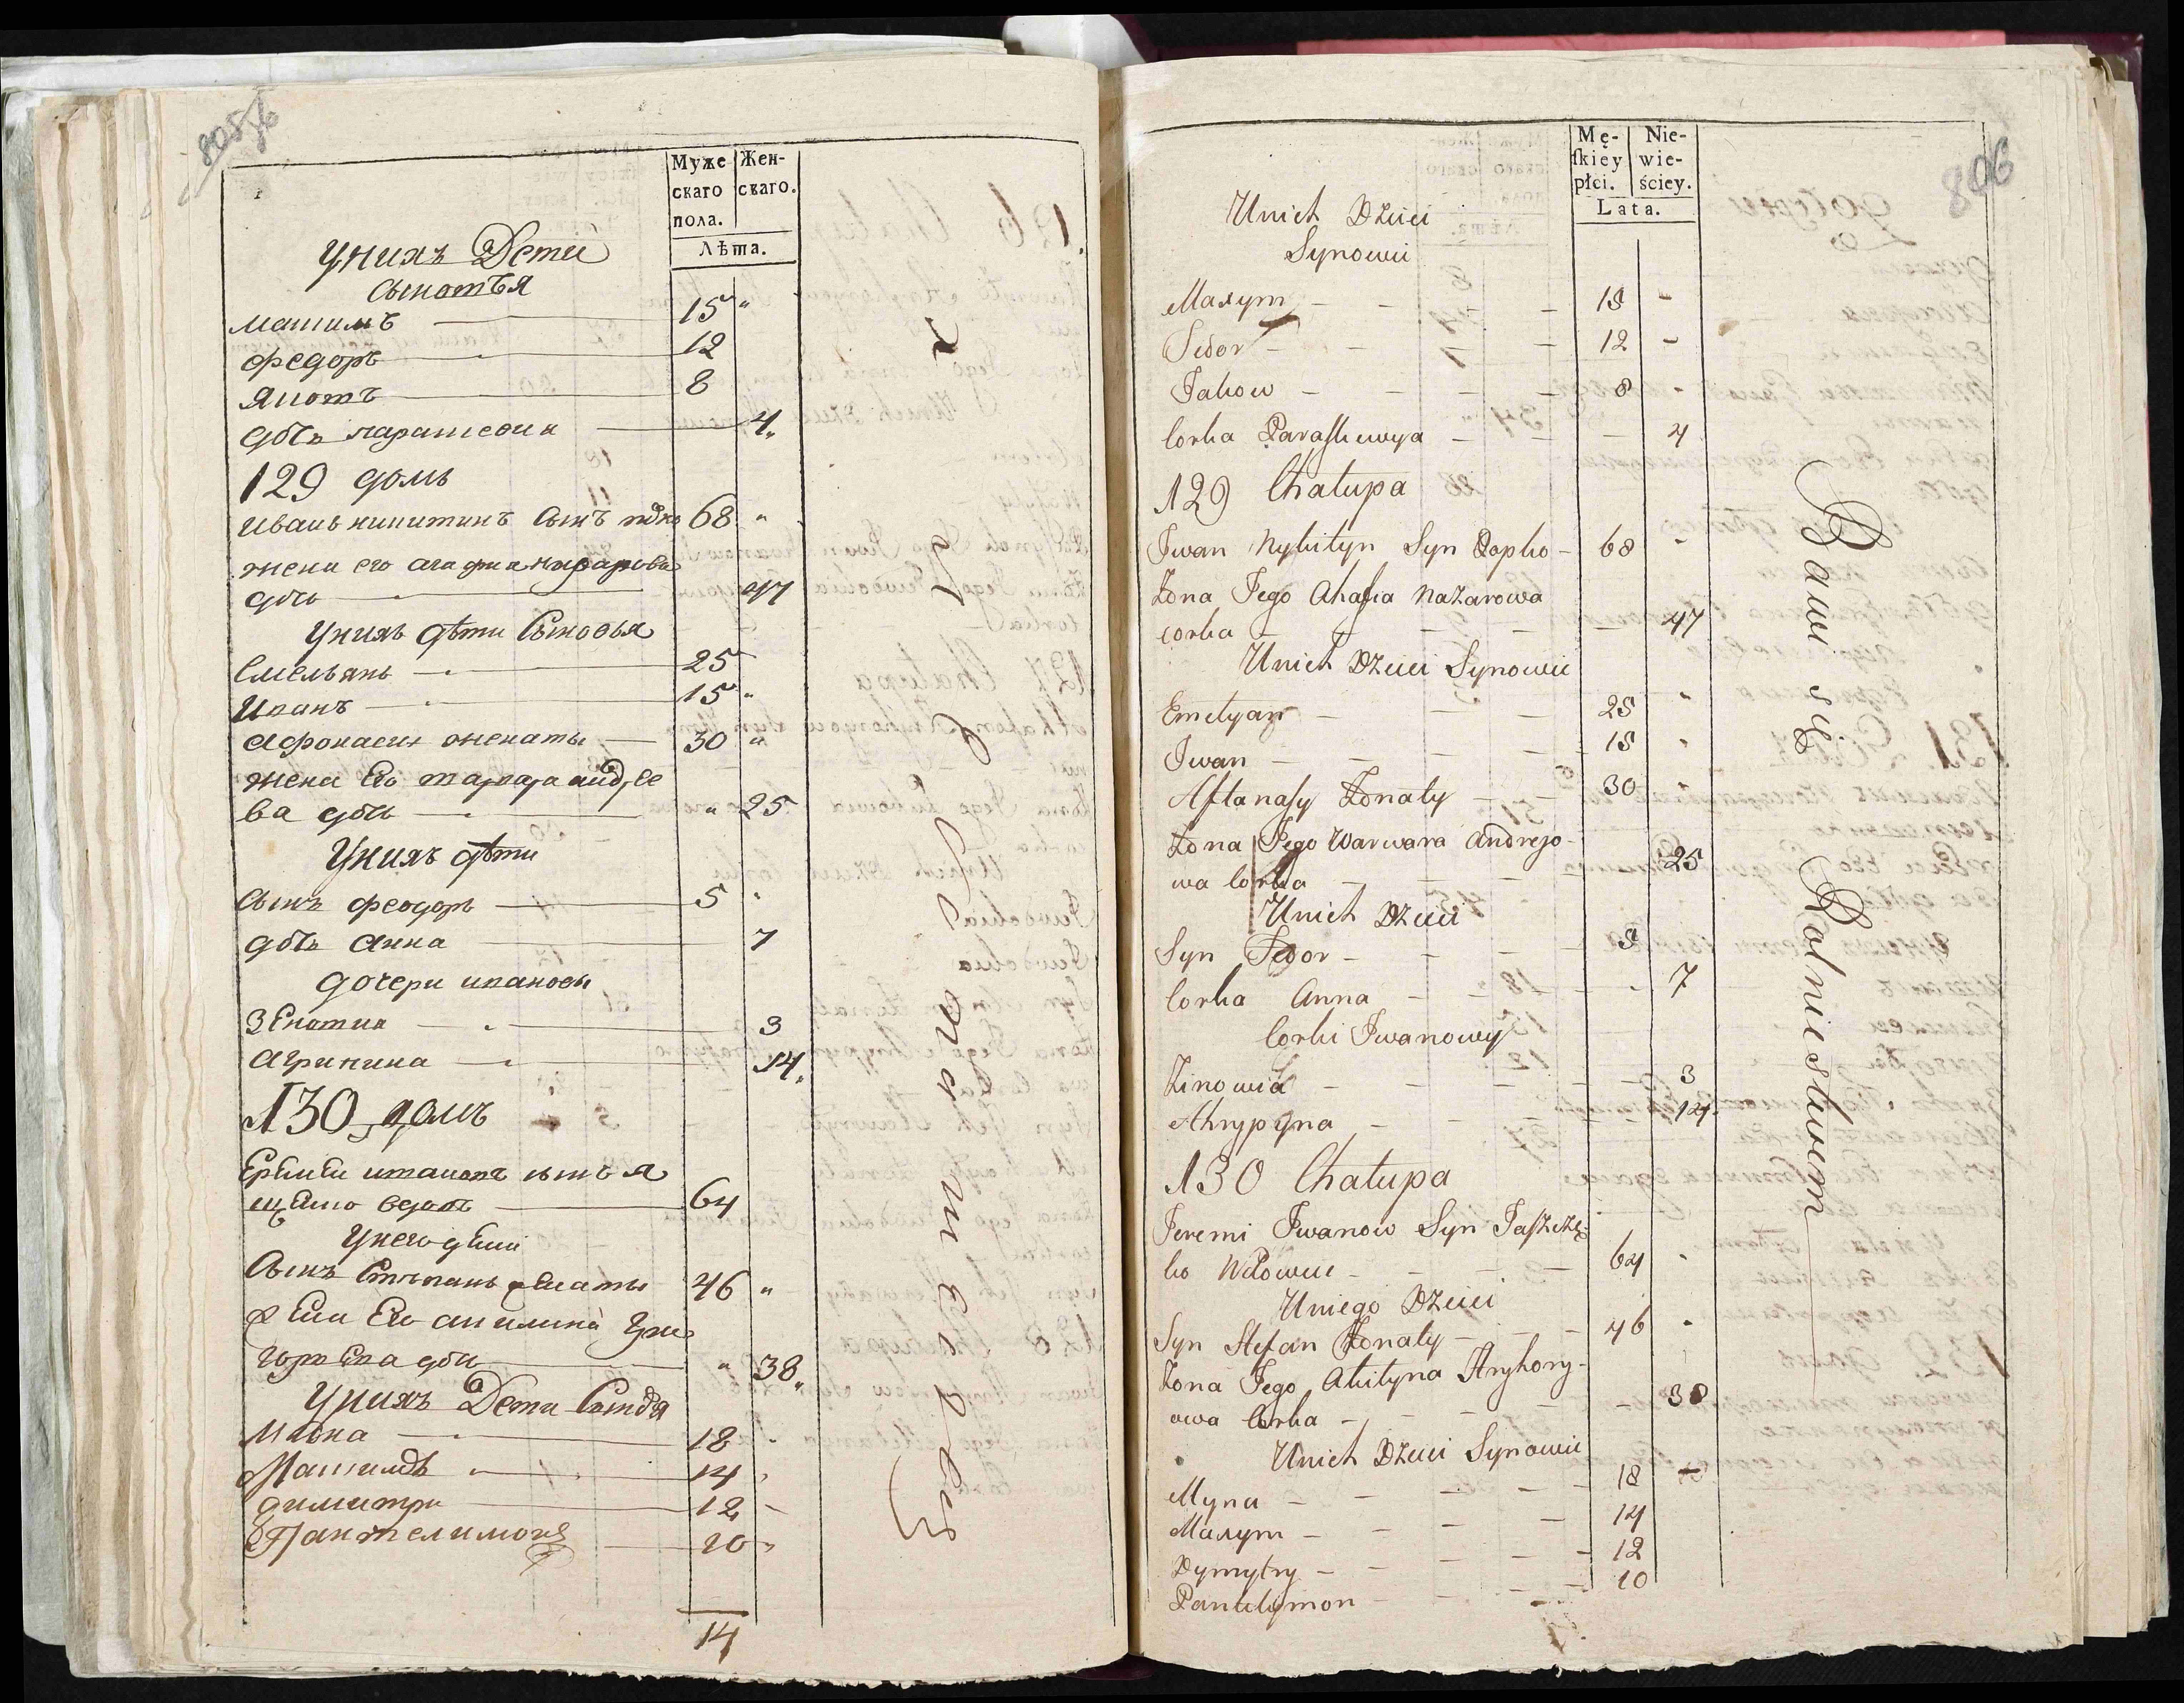 Муже
скаго
пола.
Жен-
скаго.
Лѣта.
Унихъ Дети
сыновья
максимъ 15 "
федоръ 12
яковъ 8
дочь парасковия 4 "
129 домъ
Иванъ никитинъ Сынъ 68 "
жена его агафиа назарова
дочь 47
Унихъ дѣти Сыновья
Емельянъ 25
Иванъ 15 "
Афонасеи женаты 30 "
жена Его варвара андрее
ва дочь " 25
Унихъ дѣти
Сынъ феодоръ 5 "
дочь Анна 7
дочери ивановы
Зеновия 3
Агрипина 14 "
130 домъ
Еремеи ивановъ сынъ я
щенко вдовъ 64
Унего дети
Сынъ Степанъ женаты 46 "
жена Его акилина Гри
горьева дочь " 38 "
Унихъ Дети Сыновья
Мина 18
Максимъ 14
димитри 12
Пантелимонъ 10
14
806
Mę-
ſkiey
płci.
Nie-
wie-
ściey.
Lata.
Unich Dzieci
Synowie
Maxym 15
Fedor 12
Jakow 8
Corka Paraskiewya 4
129 Chałupa
Iwan Nykityn Syn Popko 68
Żona Jego Ahafia Nazarowa
corka 47
Unich Dzieci Synowie
Emelyan 25
Iwan 15
Aftanasy Żonaty 30
Żona Jego Warwara Andrejo-
wa Corka 25
Unich Dzieci
Syn Fedor 5
Corka Anna 7
Corki Iwanowy
Zinowia 3
Ahrypyna 14
130 Chałupa
Jeremi Iwanow Syn Jaszcze-
ko Wdowiec 64
Uniego Dzieci
Syn Stefan Żonaty 46
Żona Jego Akilyna Hryhory-
owa Corka 38
Unich Dzieci Synowie
Myna 18
Maxym 14
Dymytry 12
Pantelymon 10
Bawi się Rolnictwem